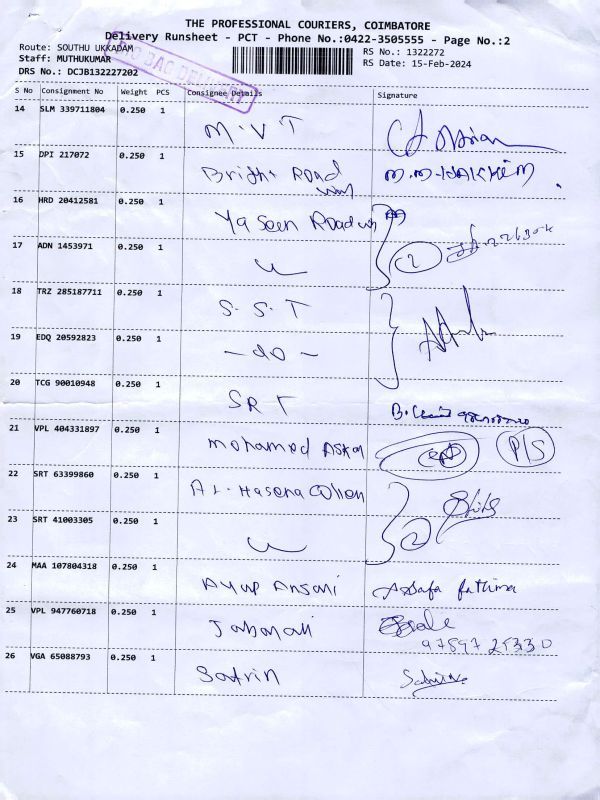 THE PROFESSIONAL COURIERS, COIMBATORE
Delivery Runsheet - PCT - Phone No.:0422-3505555 - Page No.:2
Route: SOUTHU UKKADAM
RS No.: 1322272
Staff: MUTHUKUMAR
RS Date: 15-Feb-2024
DRS No.: DCJB132227202
BAG DELIVERY
S No Consignment No Weight PCS Consignee Details Signature
14 SLM 339711804 0.250 1 M.V T
15 DPI 217072 0.250 1 Bright Road way M.M-HAKKEEM
16 HRD 20412581 0.250 1 Yaseen Roadways
17 ADN 1453971 0.250 1 2
18 TRZ 285187711 0.250 1 S. S. T
19 EDQ 20592823 0.250 1 - do -
20 TCG 90010948 0.250 1 SRT
21 VPL 404331897 0.250 1 Mohamed Askar P/S
22 SRT 63399860 0.250 1 AL-Hasena
23 SRT 41003305 0.250 1 2
24 MAA 107804318 0.250 1 Ayup Ansari fathima
25 VPL 947760718 0.250 1 Jabarali
26 VGA 65088793 0.250 1 Safrin